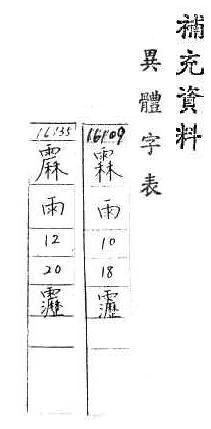 補充資料
異體字表
16109
雨
10
18
16135
雨
12
20